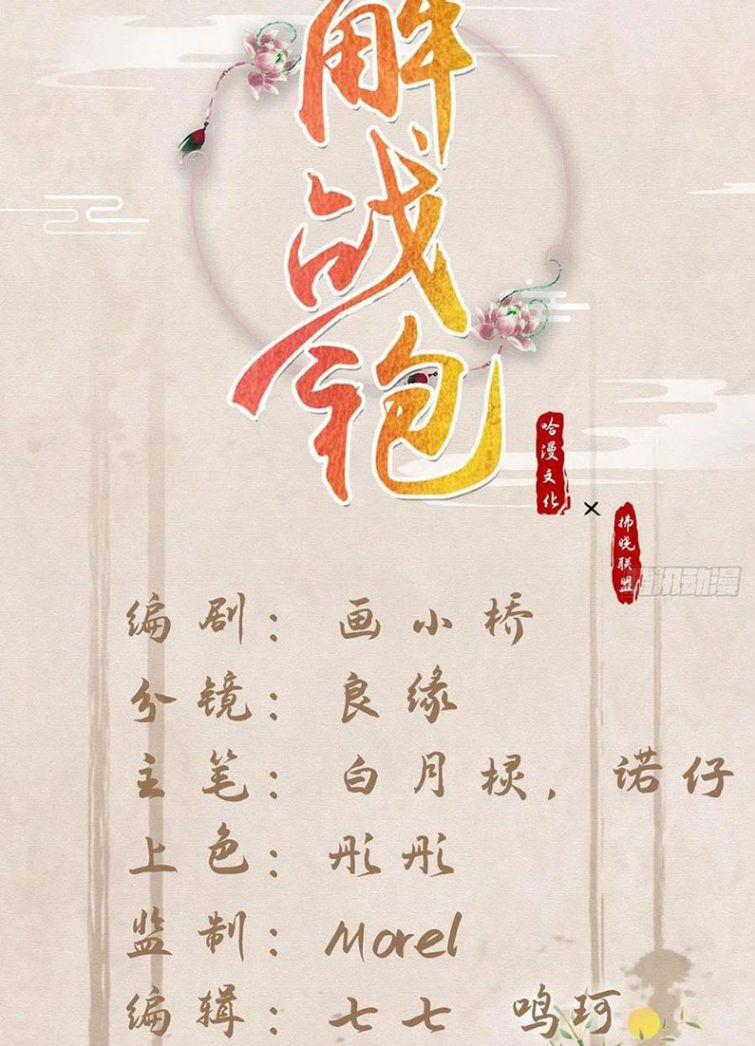 解战袍
哈漫文化
×
拂晓联盟
腾讯动漫
编剧：画小桥
分镜：良缘
主笔：白月棂，诺仔
上色：彤彤
监制：Morel
编辑：七七 鸣珂